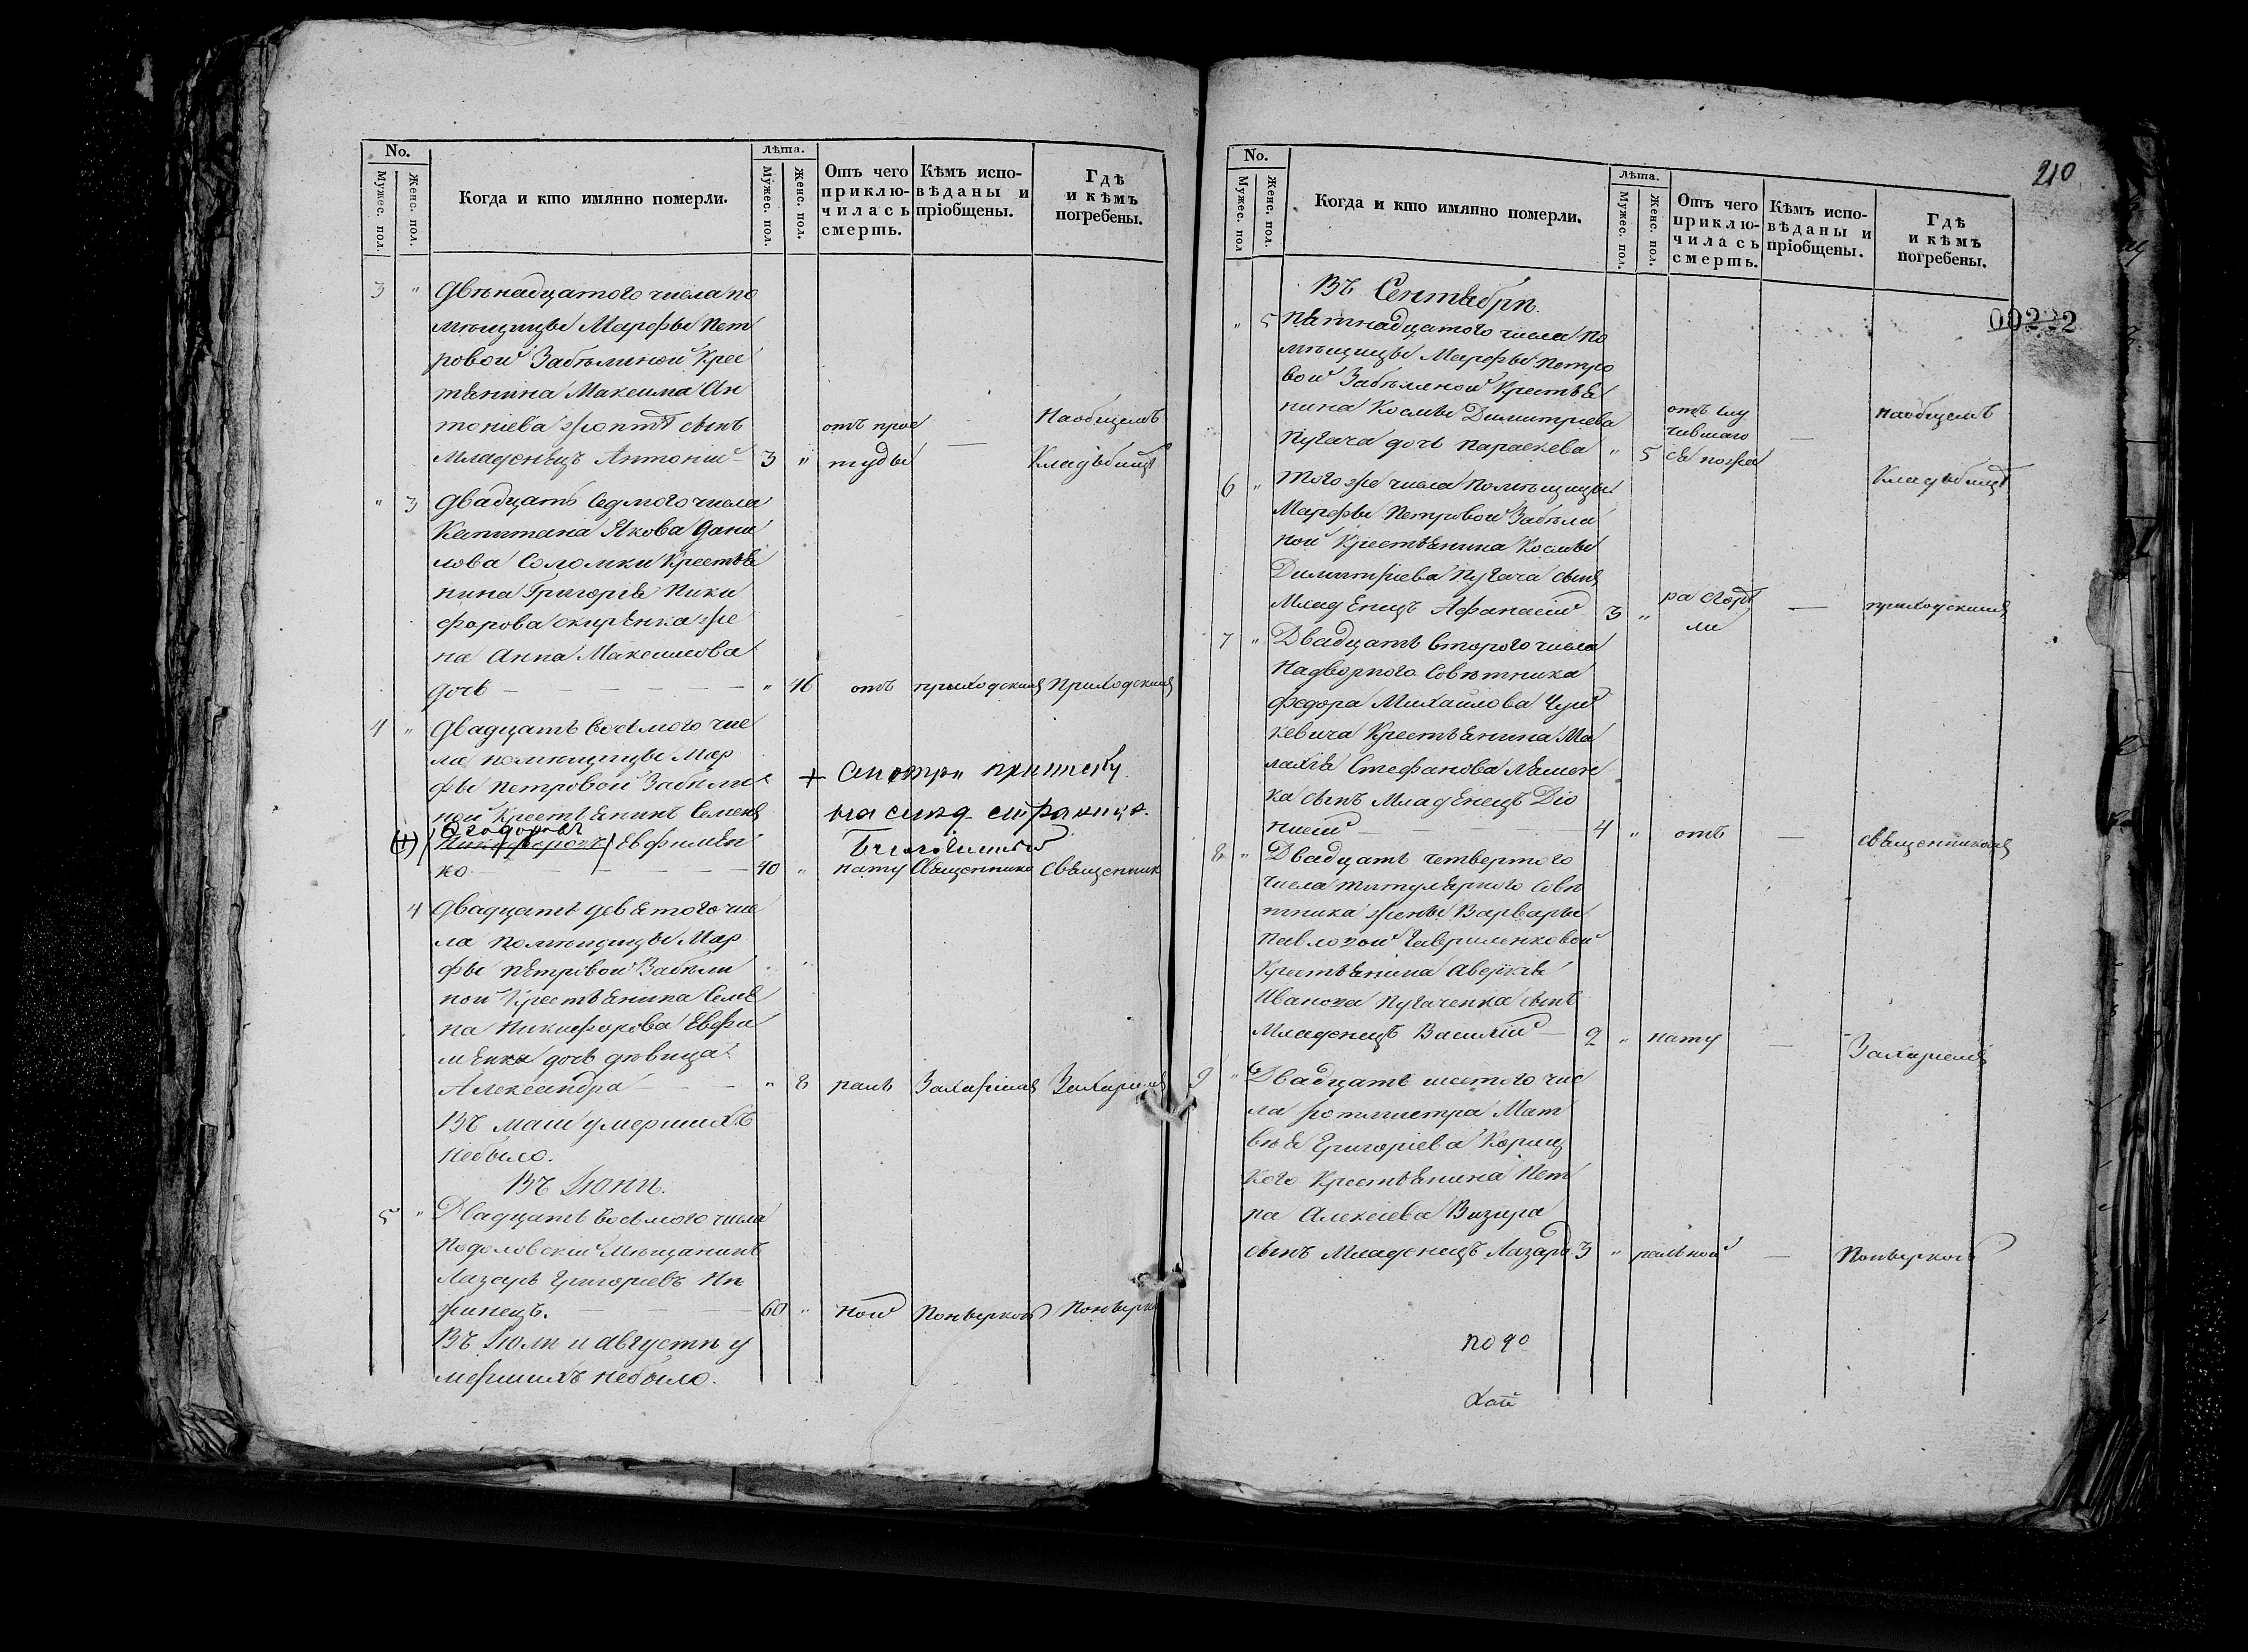 No.
Мужес. пол.
Женс. пол.
Когда и кто имянно померли.
Лѣта.
Мужес. пол.
Женс. пол.
Отъ чего
приклю-
чилась
смерть.
Кѣмъ испо-
вѣданы и
пріобщены.
Гдѣ
и кѣмъ
погребены.
3 " Двѣнадцатого числа по
мѣщицы Марфы Пет
ровой Забѣлиной Крес
тянина Максима Ан
тоніева сынъ
отъ прос
Наобщемъ
Младенецъ Антоній 3 " туды — Кладьбищѣ
" 3 Двадцать седмого числа
Капитана Якова Дани
лова Соломки Крестья
нина Григорія Ники
форова же
на Анна Максимова
дочь — " 46 отъ приходскимъ Приходскимъ
4 " Двадцать восьмого чис
ла помѣщицы Мар
фы Петровой Забѣли
ной Крестьянинъ Семенъ
+ Смотри
на слѣд. страницѣ.
(+) Феодоровъ
Никифоровъ Евфимен
ко — 40 " нату Священнико Священник
4 Двадцать девятого чис
ла Помѣщицы Мар
фы Петровой Забѣли
ной Крестьянина Семе
на Никифорова Евфи
менка дочь дѣвица
Александра — " 8 раль Захаріемъ Захаріемъ
Въ маіи умершихъ
небыло.
Въ Іюни.
5 " Двадцать восьмого числа
мѣщанинъ
Лазарь Григоріевъ Нѣ
жинецъ. — 60 " ной Понырком Поныркo
Въ Іюли и Августѣ у
мершихъ небыло.
210
No.
Мужес. пол
Женс. пол.
Когда и кто имянно померли.
Лѣта.
Мужес. пол.
Женс. пол.
Отъ чего
приклю-
чилась
смерть.
Кѣмъ испо-
вѣданы и
пріобщены.
Гдѣ
и кѣмъ
погребены.
00222
Въ Сентябрѣ.
" 5 Пятнадцатого числа По
мѣщицы Марфы Петро
вой Забѣлиной Крестья
нина Космы Димитріева
отъ слу
чившаго
Наобщемъ
Пугача дочь Параскева " 5 ся пожа —
6 " Того же числа Помѣщицы
Кладьбищѣ
Марфы Петровой Забѣли
ной Крестьянина Космы
Димитріева Пугача сынъ
Младенецъ Афанасій 3 " ра сгорѣ
ли — приходскимъ
7 " Двадцать второго числа
Надворного Совѣтника
Федора Михайлова Чуй
кевича Крестьянина Ма
лахія Стефанова
ка сынъ Младенецъ Діо
нисій — 4 " отъ — священникомъ
8 " Двадцать четвертого
числа титулярного Совѣ
тника жены Варвары
Павловой Гавриленковой
Крестьянина Аверкія
Иванова Пугаченка сынъ
Младенецъ Василій — 2 " нату — Захаріемъ
9 " Двадцать шестого чис
ла ротмистра Мат
вѣя Григоріева Кориц
кого Крестьянина Пет
ра Алексіева Визира
сынъ Младенецъ Лазарь 3 " ральной — Понырком